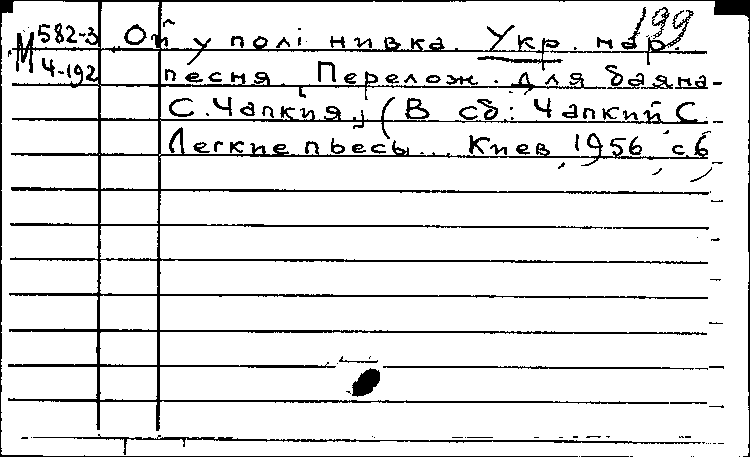 199
М 582-3 Ой у полі нивка. Укр. нар.
4-192 песня. Перелож. для баяна
С. Чапкия. (В сб: Чапкий С.
Легкие пьесы... Киев, 1956, с.6)